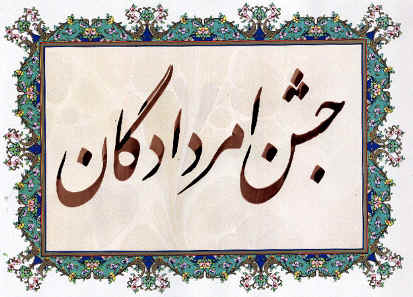 جشن امردادگان